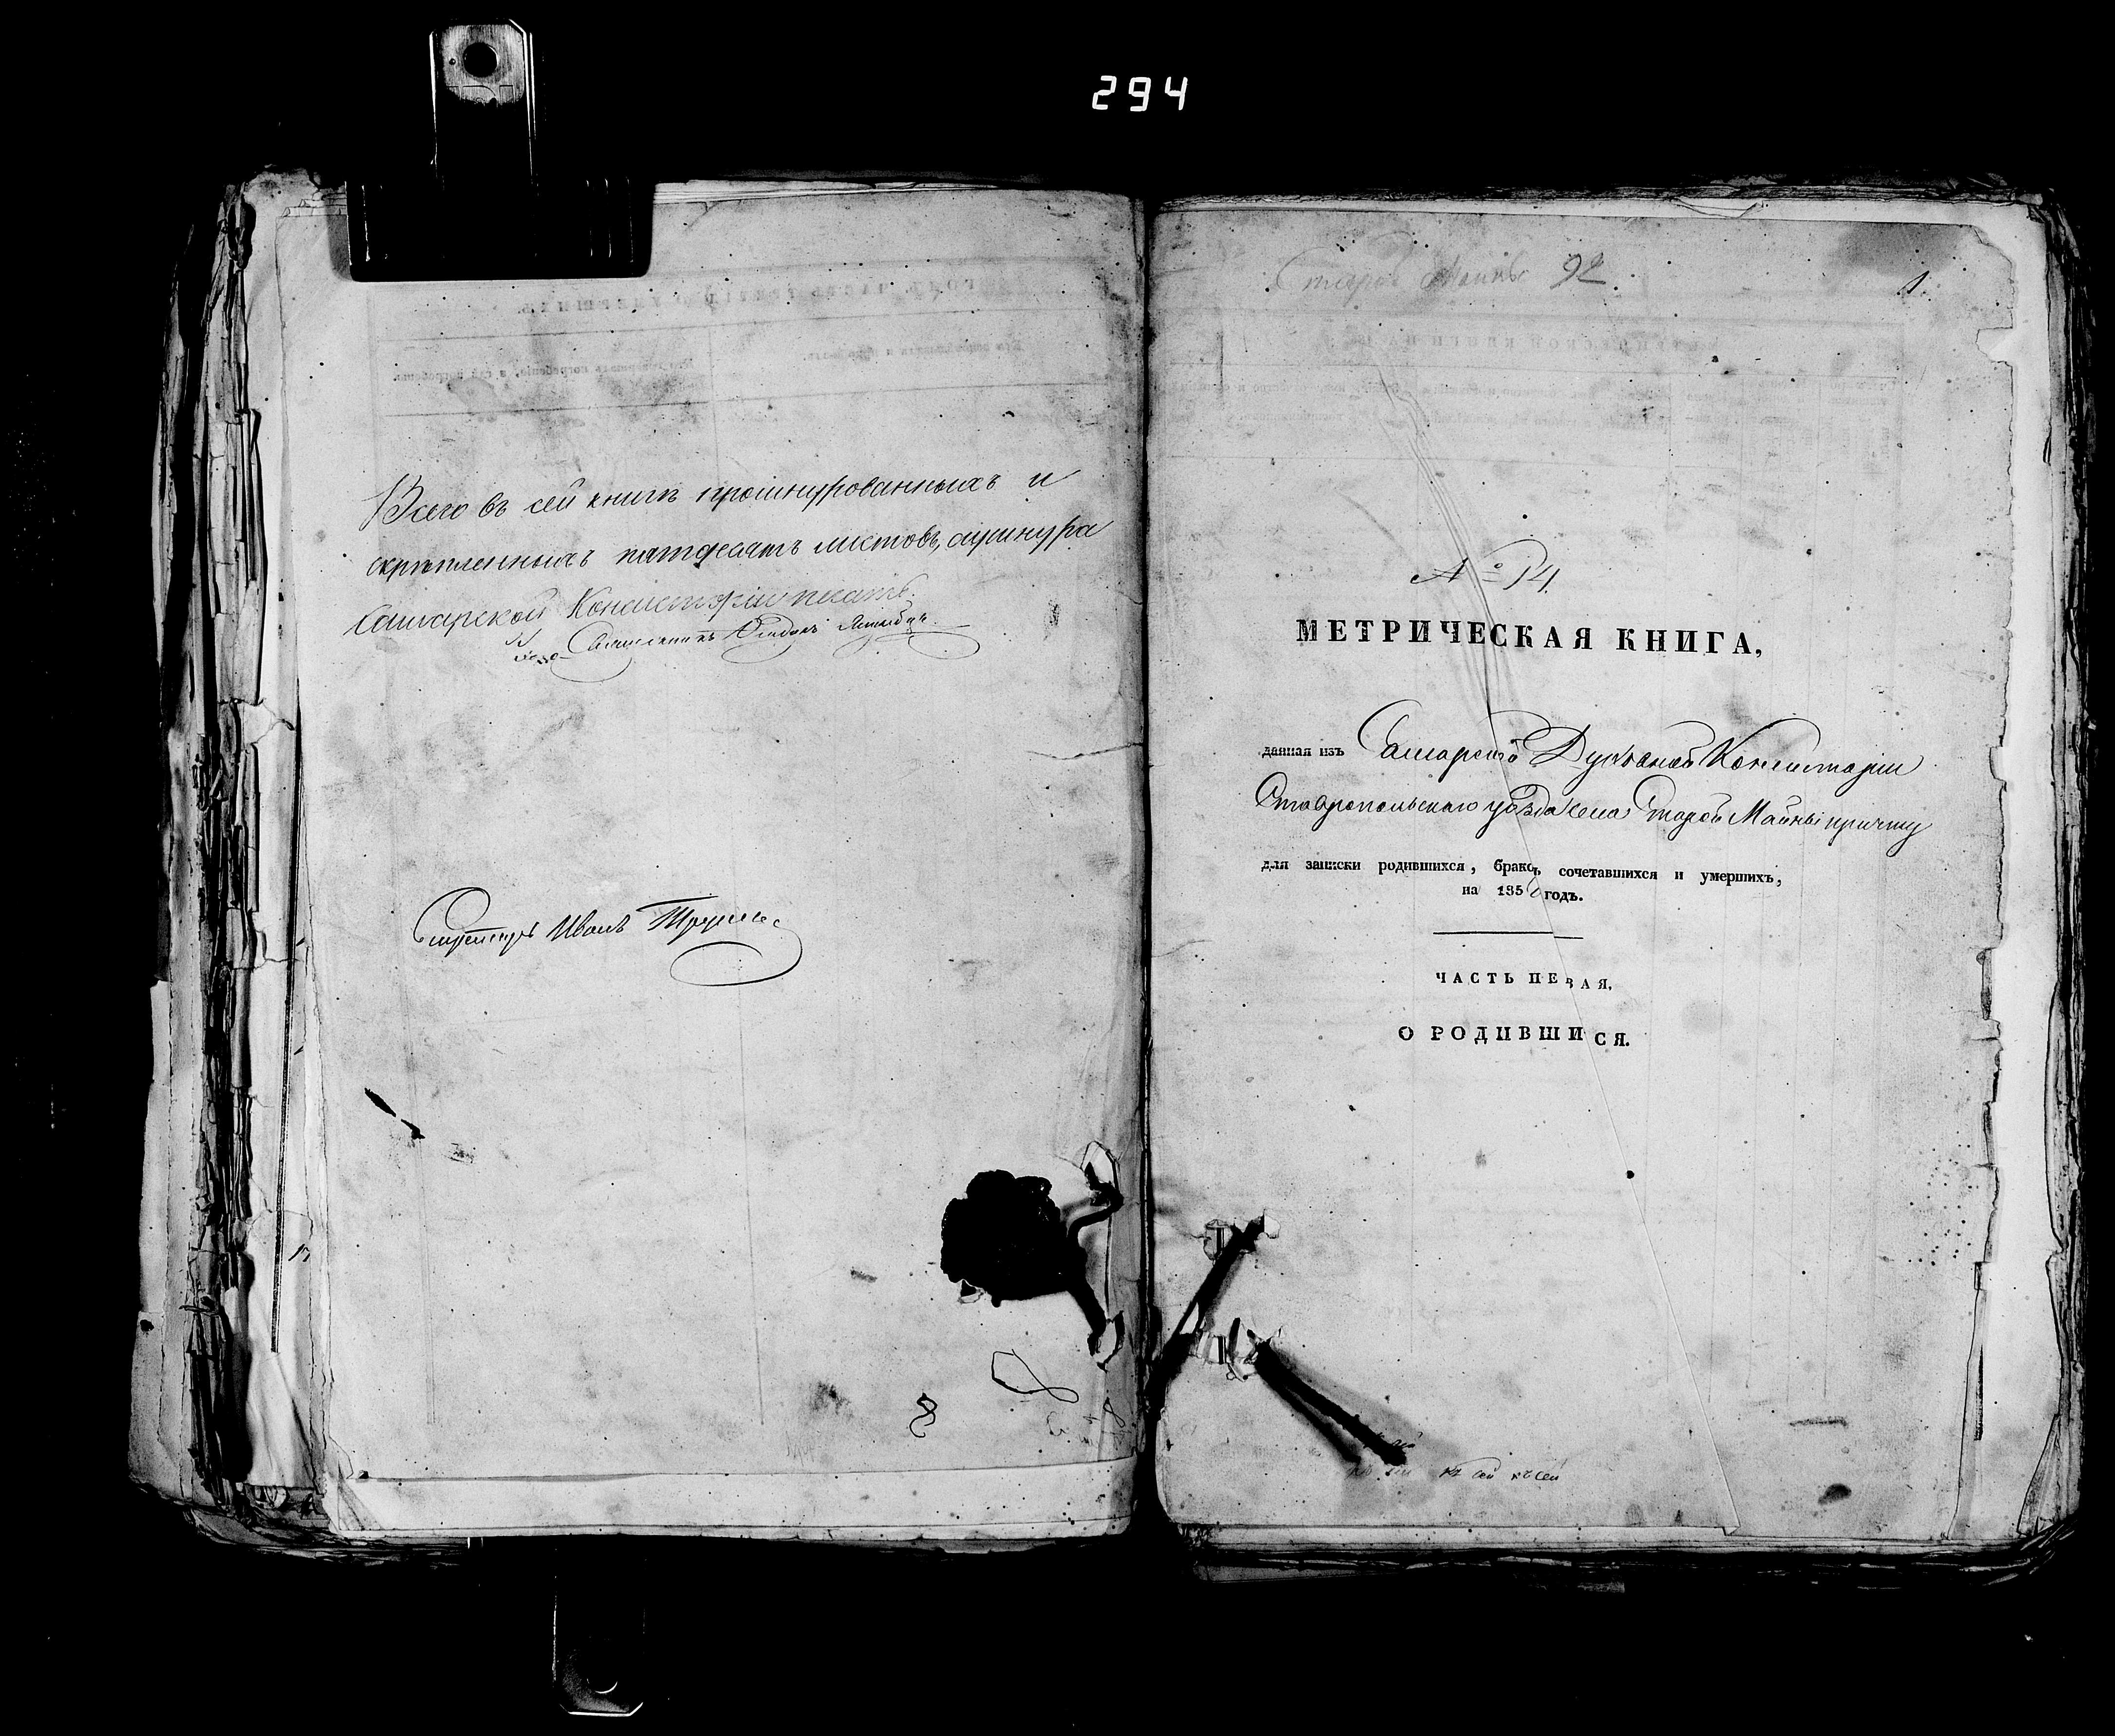 294
Всего въ сей книгѣ прошнурованныхъ и
скрѣпленныхъ пятдесятъ листовъ, а у шнура
Самарской Консисторіи печать.
Секретарь Иванъ
8
Старой Майны 92.
1.
№ 14.
МЕТРИЧЕСКАЯ КНИГА,
данная изъ Самарской Духовной Консисторіи
Ставропольскаго уѣзда села Старой Майны причту
для записки родившихся, бракъ сочетавшихся и умершихъ,
на 185 годъ.
ЧАСТЬ ПЕРВАЯ,
О РОДИВШИСЯ.
къ сей къ сей